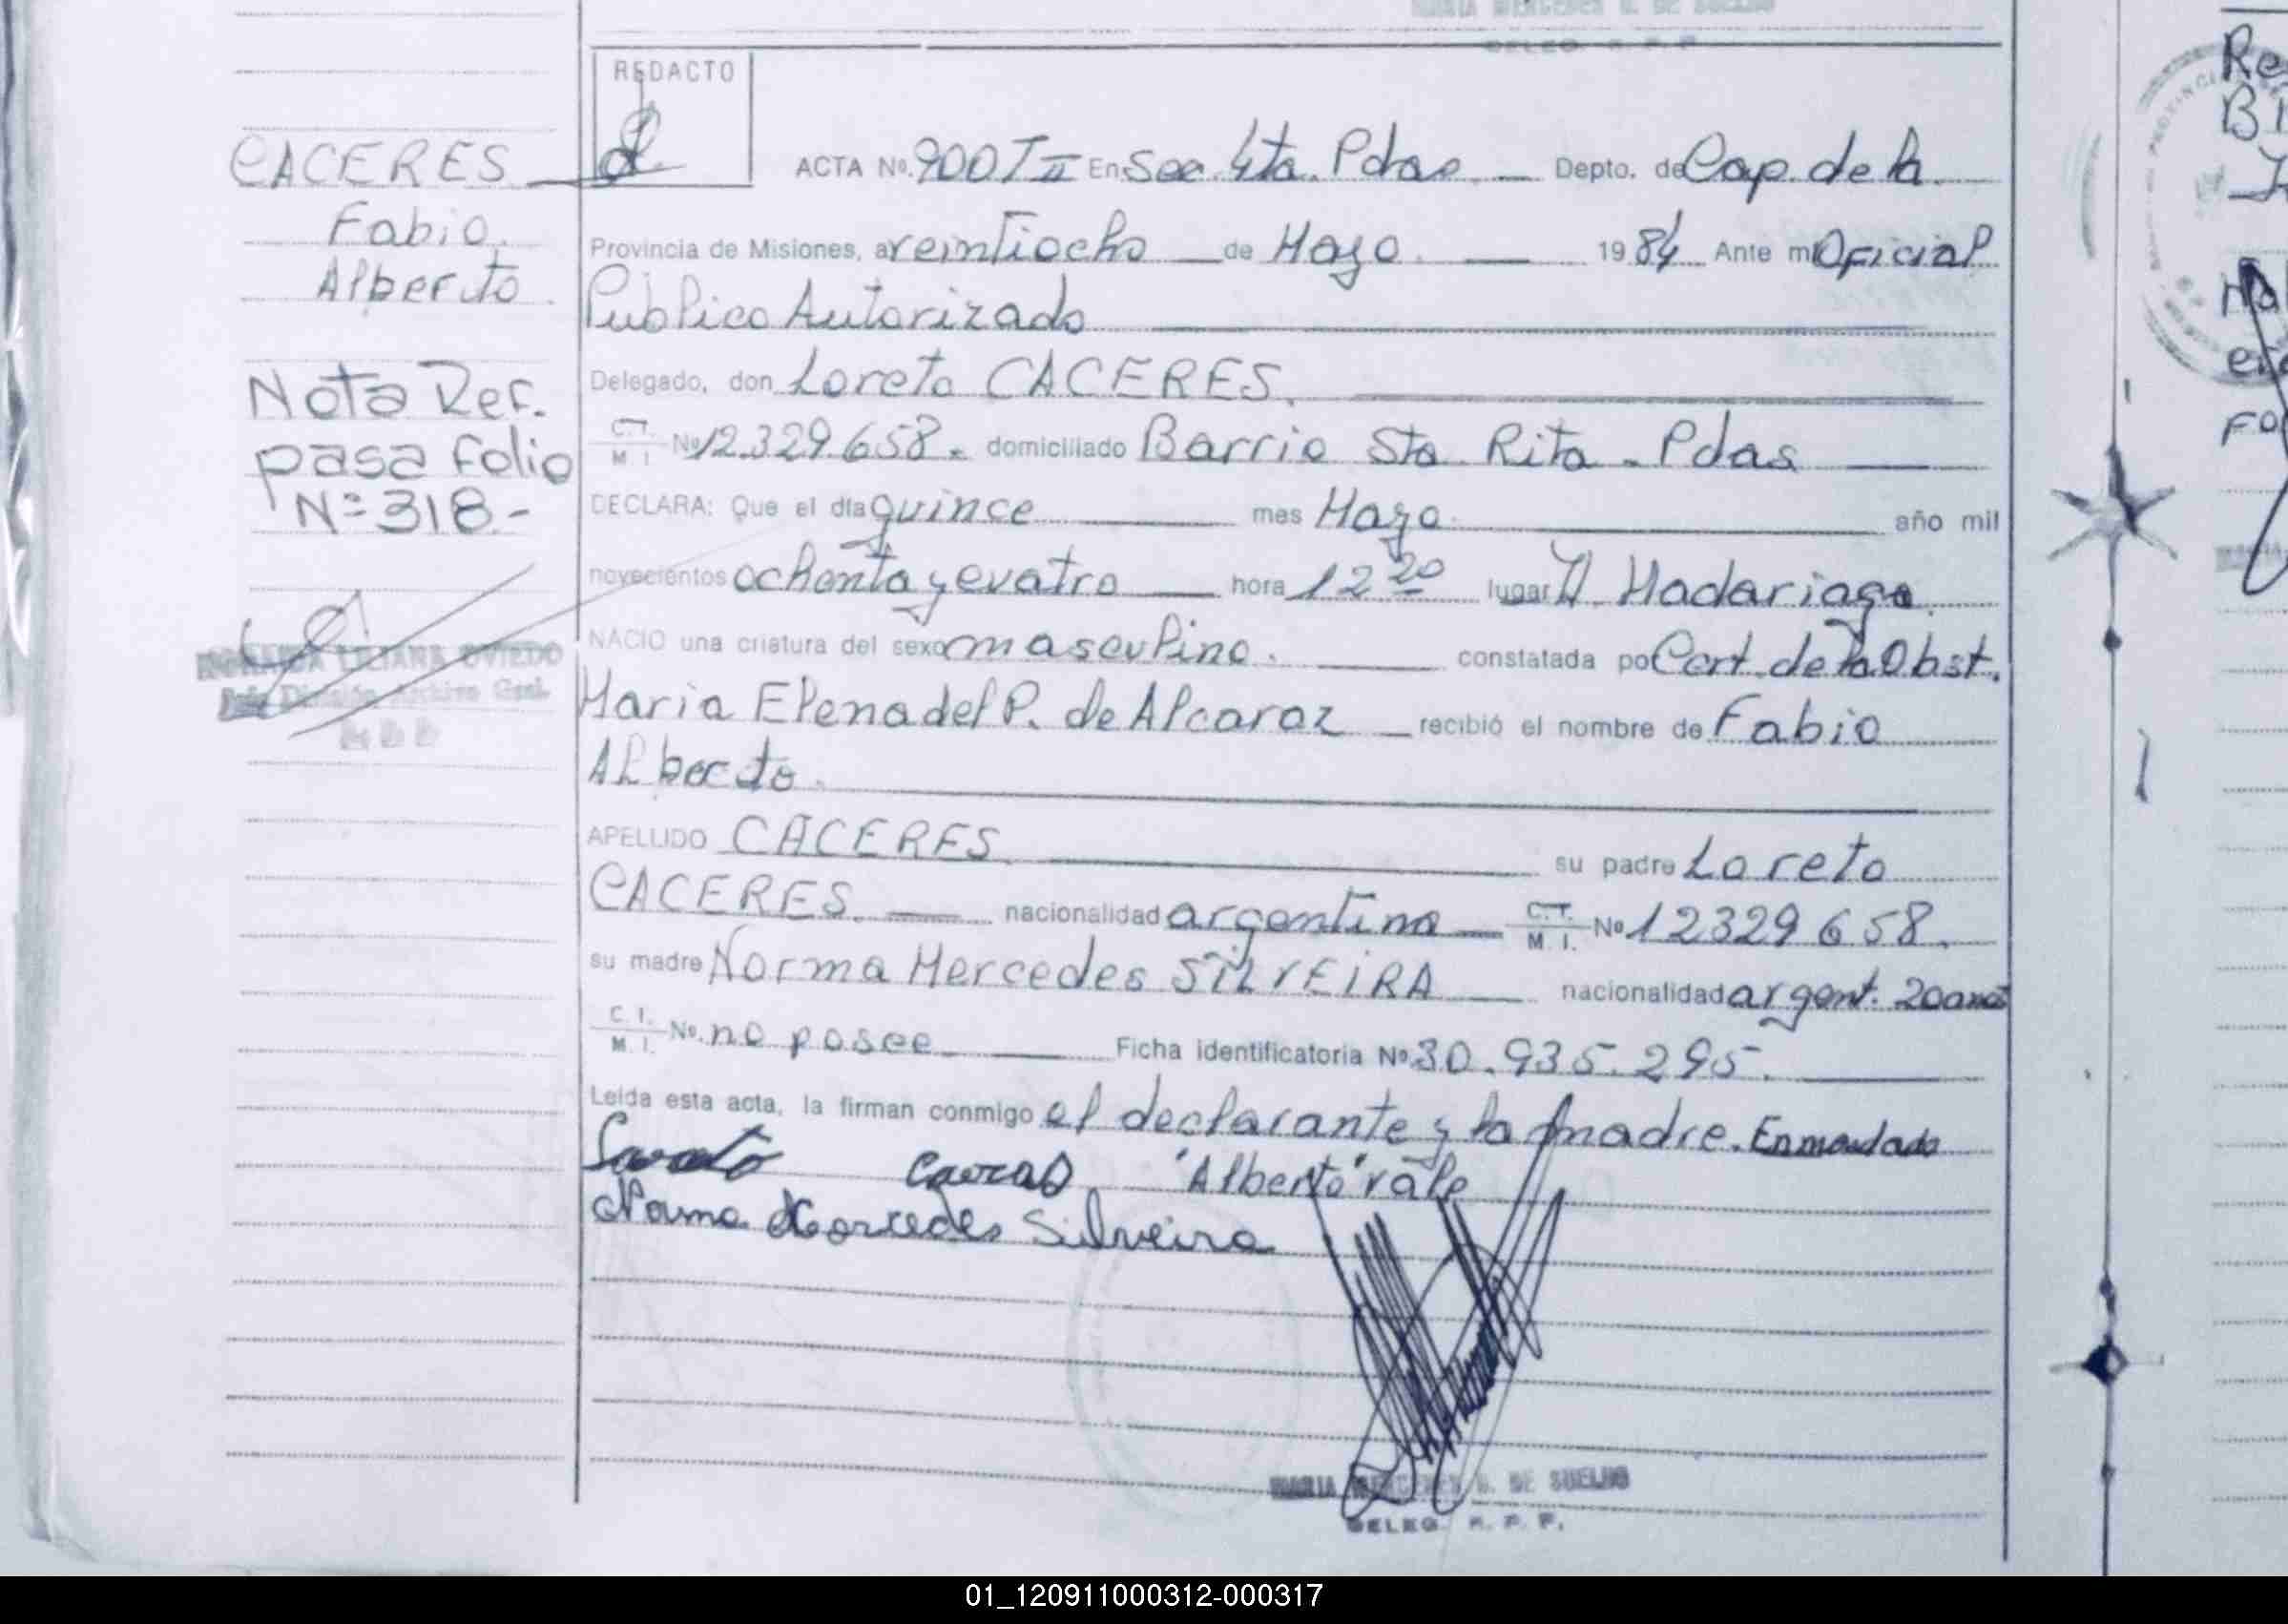 MARIA MERCEDES G. DE SUELDO
DELEG. R. P. P.
REDACTO
CACERES
Fabio
Alberto
Nota Ref.
pasa folio
Nº 318-
LILIANA OVIEDO
División Archivo Gral.
ACTA Nº. 900 T II En Sec. 4ta. Pdas. Depto. de Cap. de la
Provincia de Misiones, a veintiocho de Mayo 1984 Ante mi Oficial
Publico Autorizado
Delegado, don Loreto CACERES.
C.I. M.I. Nº 12.329.658. domiciliado Barrio Sta Rita - Pdas
DECLARA: Que el día quince mes Mayo año mil
novecientos ochenta y cuatro hora 12 20 lugar H. Madariaga.
NACIO una criatura del sexo masculino. constatada po Cert. de la Obst.
Maria Elena del P. de Alcaraz recibió el nombre de Fabio
Alberto.
APELLIDO CACERES su padre Loreto
CACERES. nacionalidad argentina C.I. M.I. Nº 12329658.
su madre Norma Mercedes SILVEIRA nacionalidad argent. 20 años
C.I. M.I. Nº. no posee Ficha identificatoria Nº 30.935.295.
Leída esta acta, la firman conmigo el declarante y la madre. Enmendado
"Alberto" vale
Norma Mercedes Silveira
MARIA MERCEDES G. DE SUELDO
DELEG. R. P. P.
01_120911000312-000317